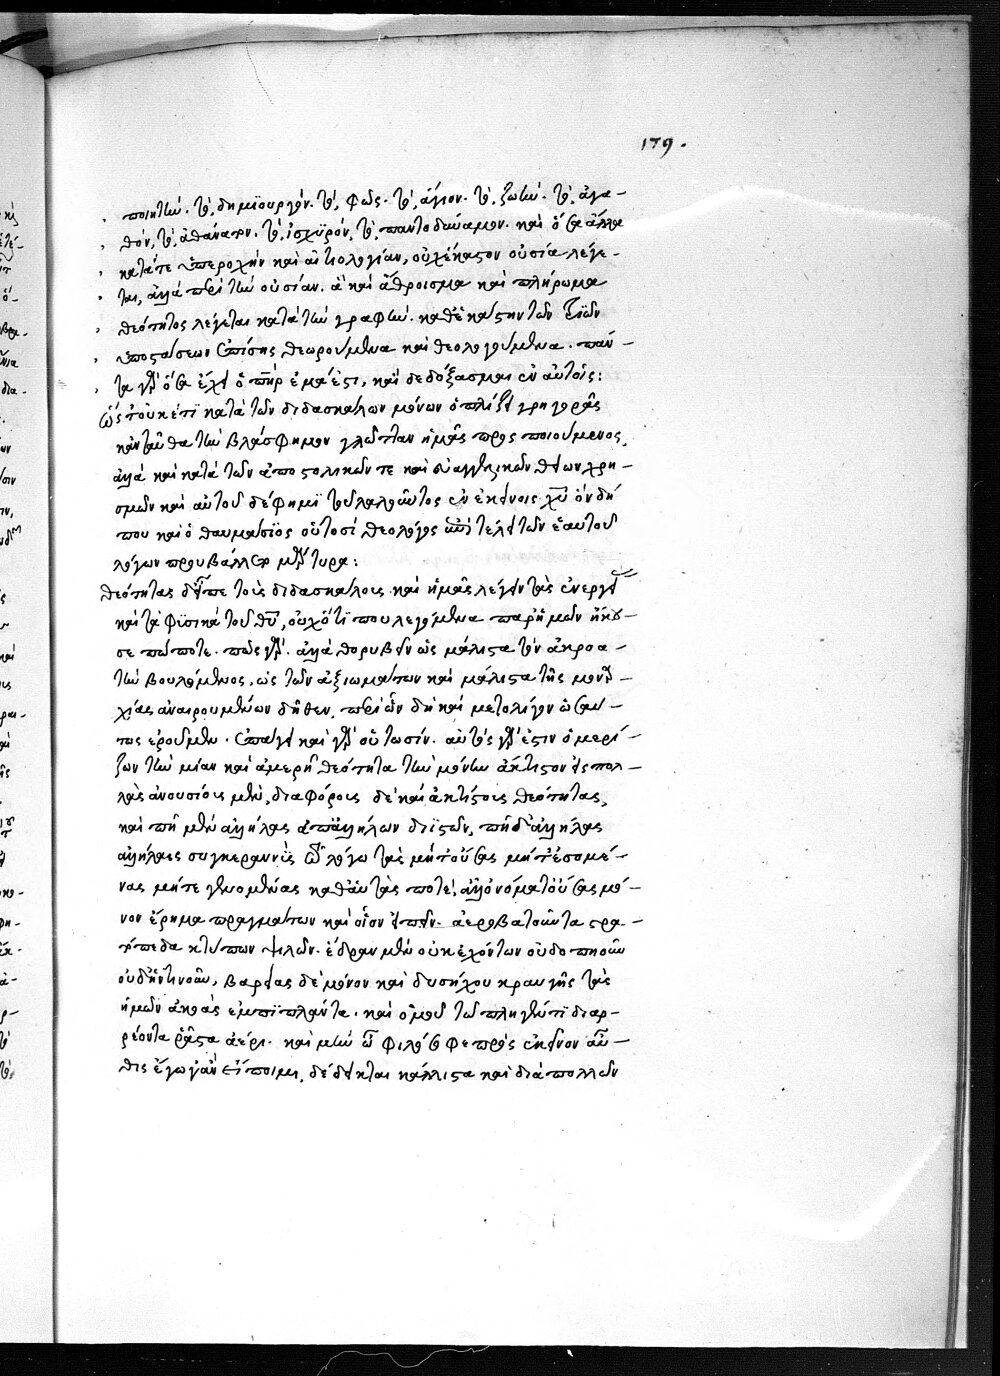 179.
ποιητὴν. τὸ, δημιουργόν. τὸ, φῶς. τὸ, ἅγιον. τὸ, ζωὴν. τὸ, ἀγα-
θόν, τὸ, ἀθάνατον. τὸ, ἰσχυρόν, τὸ, παντοδύναμον. καὶ ὅσα ἄλλα
κατά τε ὑπεροχὴν καὶ αἰτιολογίαν, οὐχ ἕκαστον οὐσία λέγε-
ται, ἀλλὰ περὶ τὴν οὐσίαν. ἃ καὶ ἄθροισμα καὶ πλήρωμα
θεότητος λέγεται κατὰ τὴν γραφὴν. καθ' ἑκάστην τῶν τριῶν
ὑποστάσεων ἐπίσης θεωρούμενα καὶ θεολογούμενα. πάν-
τα γὰρ ὅσα ἔχει ὁ πηρ ἐμά ἐστι, καὶ δεδόξασμαι ἐν αὐτοῖς:
Ὡς τοὐκέτι κατὰ τῶν διδασκάλων μόνων ὁπλίζει γρηγορᾶς
κἀνταῦθα τὴν βλάσφημον γλῶτταν ἡμᾶς προσποιούμενος,
ἀλλὰ καὶ κατὰ τῶν ἀποστολικῶν τε καὶ εὐαγγελικῶν θείων χρη-
σμῶν καὶ αὐτοῦ δέ φημι τοῦ λαλοῦντος ἐν ἐκείνοις χυ ὃν δή
που καὶ ὁ θαυμάσιος οὑτοσὶ θεολόγος ἐπὶ τέλει τῶν ἑαυτοῦ
λόγων προυβάλλετο μάρτυρα:
θεότητας δ' εἴπε τοῖς διδασκάλοις καὶ ἡμᾶς λέγειν τὰς ἐνεργεί
καὶ τὰ φυσικὰ τοῦ θυ, οὐχ ὅτι που λεγόμενα παρ' ἡμῶν ἤκου-
σε πώποτε. πῶς γάρ. ἀλλὰ θορυβεῖν ὡς μάλιστα τὸν ἀκροα-
τὴν βουλόμενος, ὡς τῶν ἀξιωμάτων καὶ μάλιστα τῆς μοναρ-
χίας ἀναιρουμένων δῆθεν, περὶ ὧν δὴ καὶ μετ' ὀλίγον ὡσαύ-
τως ἐροῦμεν. ἐπάγει καὶ γὰρ οὕτωσίν. αὐτὸς γάρ ἐστιν ὁ μερί-
ζων τὴν μίαν καὶ ἀμερῆ θεότητα τὴν μόνην ἄκτιστον εἰς πολ-
λὰς ἀνουσίοις μὲν, διαφόροις δὲ καὶ ἀκτίστοις θεότητας,
καὶ πῆ μὲν ἀλλήλας ἀπαλλήλων διϊστῶν, πῆ δ' ἀλλήλας
ἀλλήλαις συγκεραννὺς ὢ λόγω τὰς μήτ' οὔσας μήτ' ἐσομέ-
νας μήτε γενομένας καθ' αὑτὰς ποτέ, ἀλλ' ὀνόματ' οὔσας μό-
νον ἔρημα πραγμάτων καὶ οἷον εἰπεῖν. ἀεροβατοῦντα στρα-
τόπεδα κτύπων ψιλῶν. ἕδραν μὲν οὐκ ἐχόντων οὐδοπησοῦν
οὐδ' ἡντινοῦν, βαρείας δὲ μόνον καὶ δυσήχου κραυγῆς τὰς
ἡμῶν ἀκοὰς ἐμπιπλάντα. καὶ ὁμοῦ τῶ πληγέντι διαρ-
ρέοντα ῥᾷστα ἀέρι. καὶ μὴν ὦ φιλόσοφε πρὸς ἐκεῖνον αὖ-
θις ἔγωγ' ἂν εἴποιμι, δέδεικται κάλλιστα καὶ διὰ πολλῶν